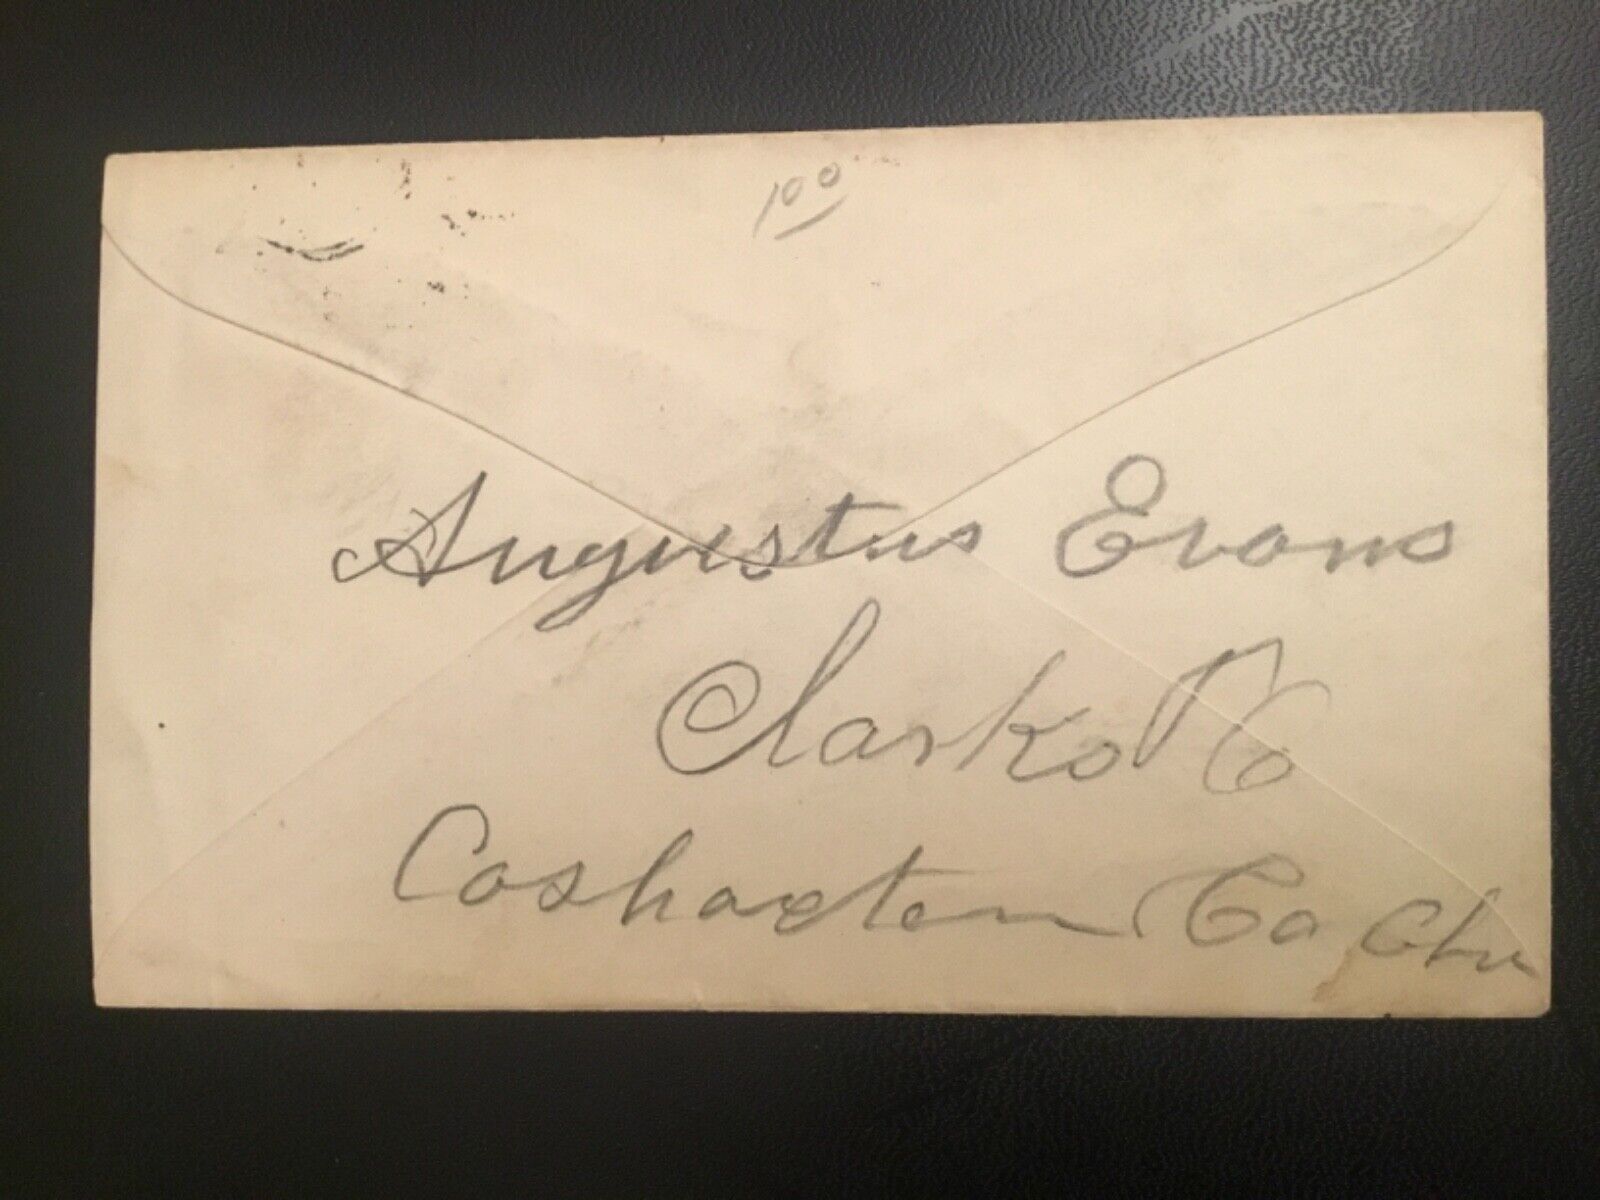 100
Augustus Evans
Clarks PO
Coshocton Co Ohio